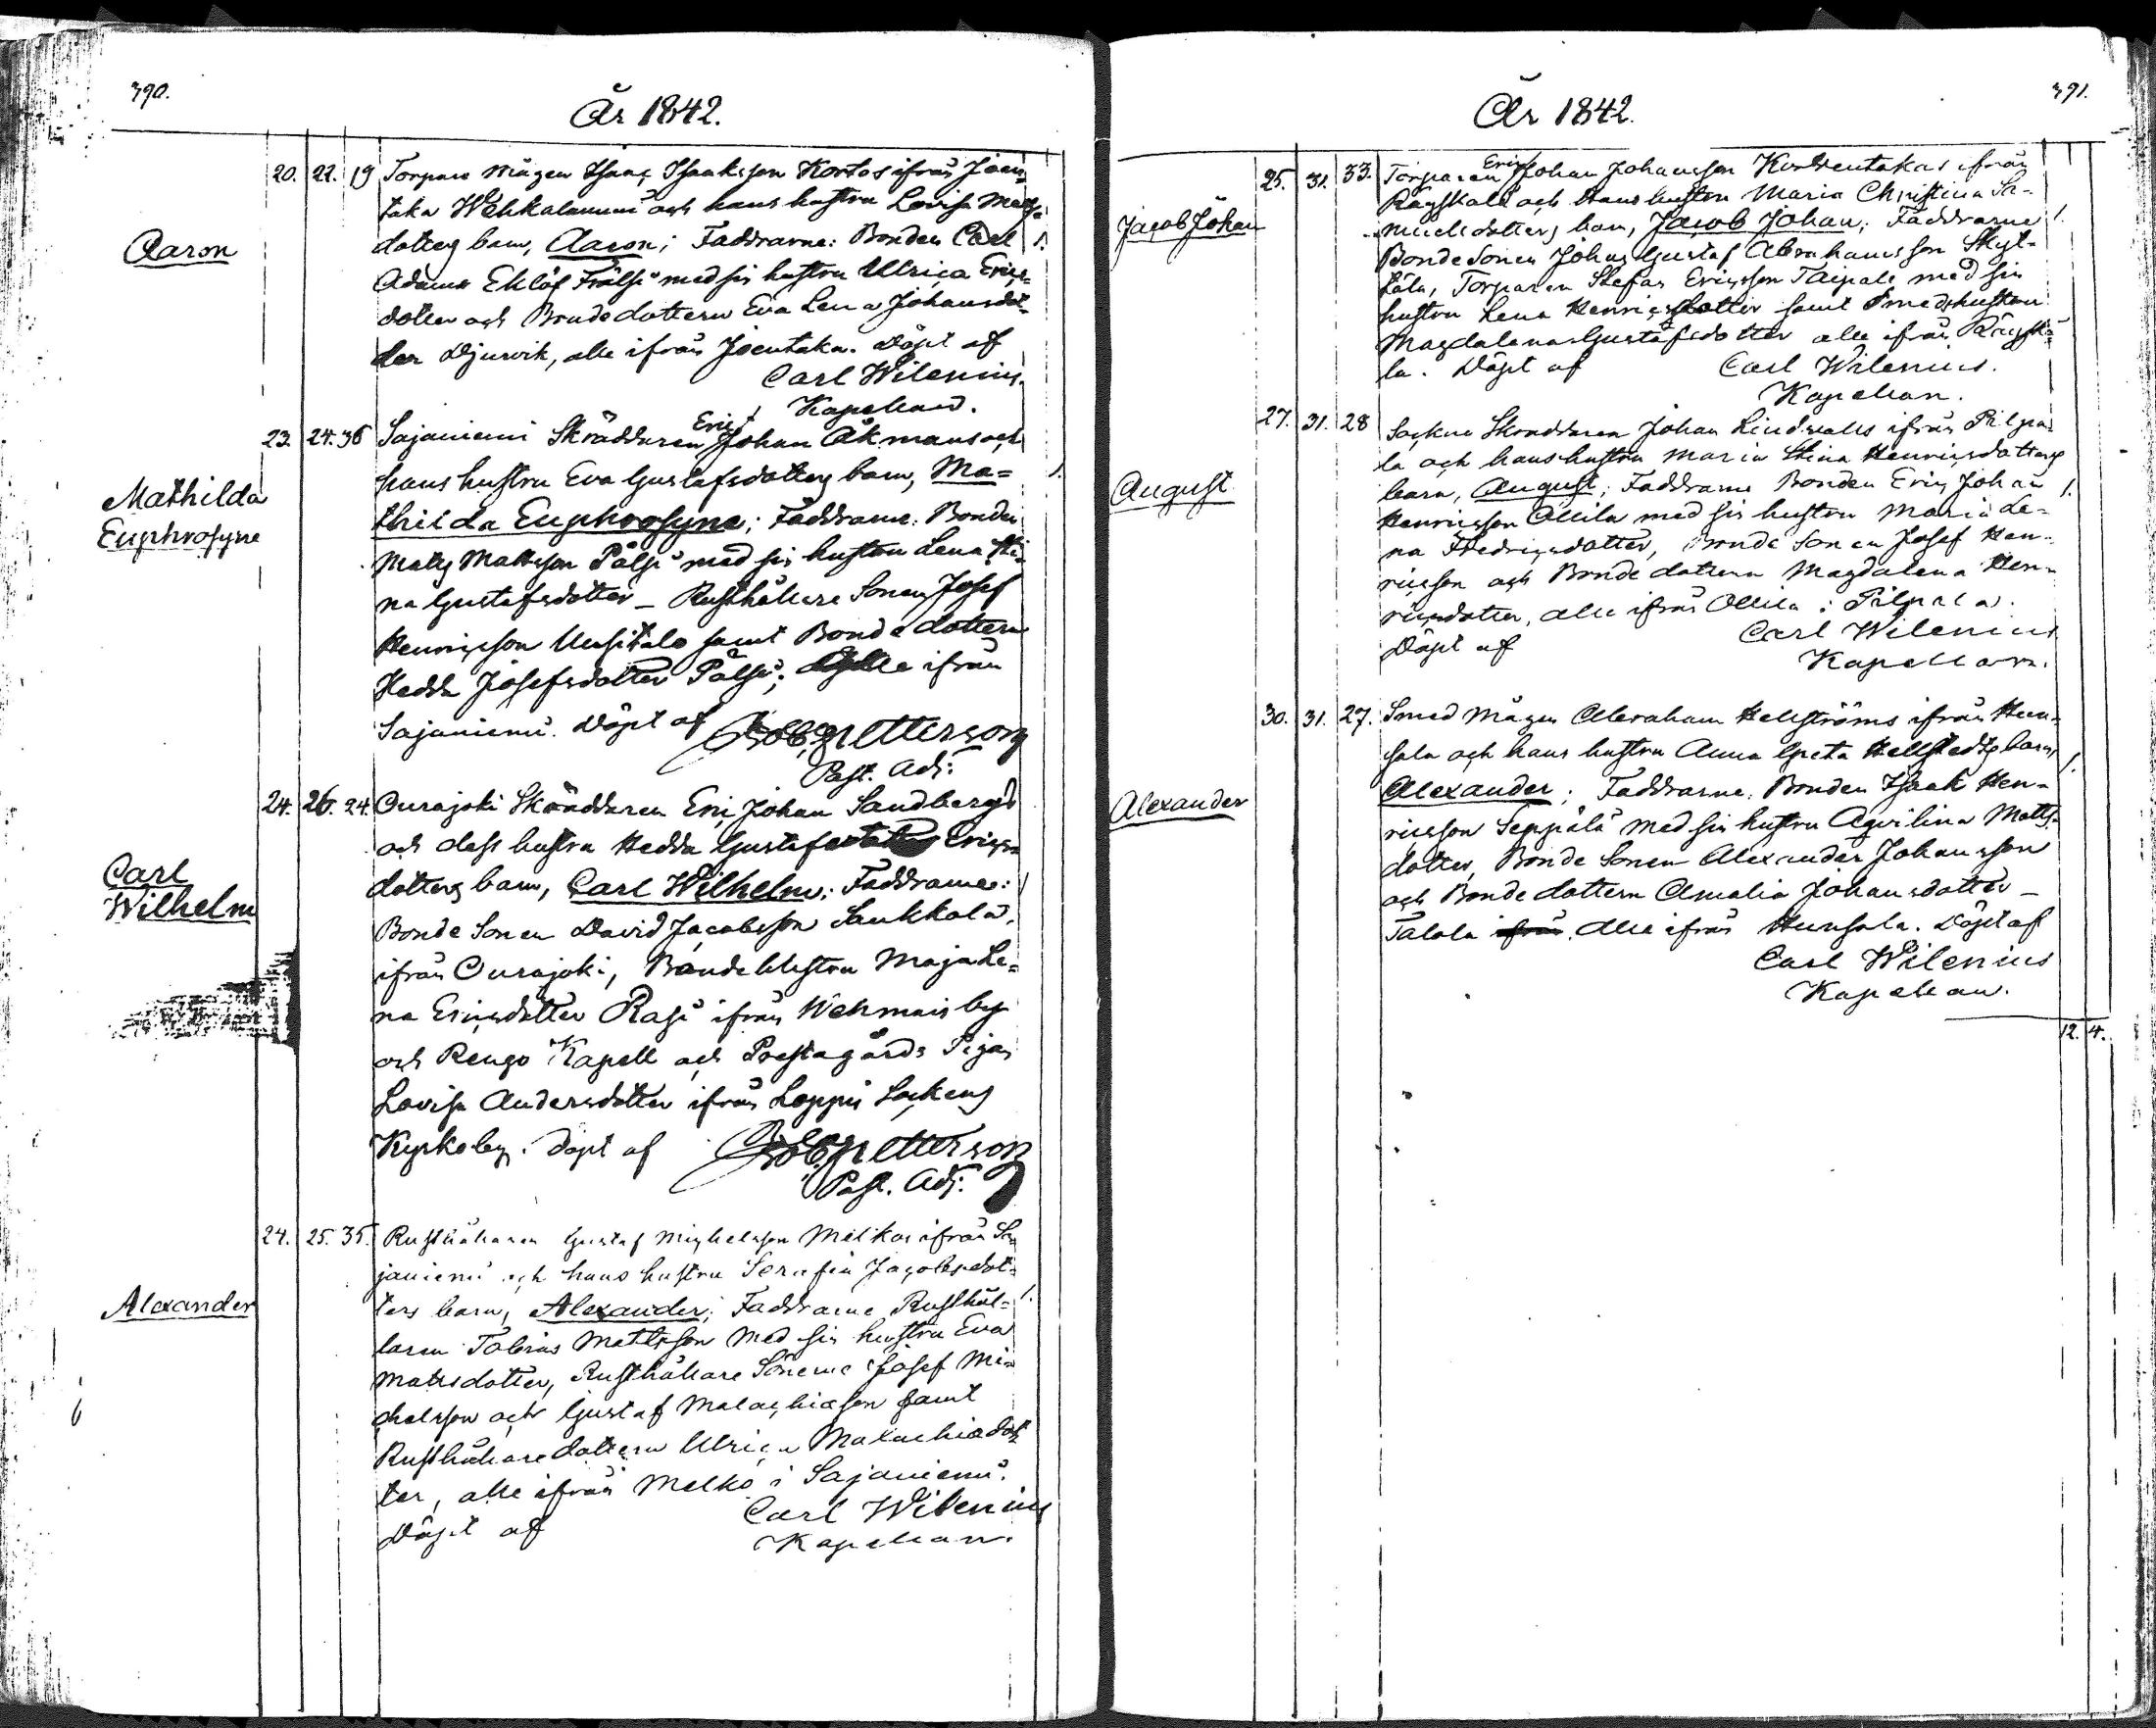 390.
År 1842.
20. 22. 19 Torpare Mågen Isaac Isaksson Kortos ifrån Joen-
taka Wehkalammi och hans hustru Lovisa Matts-
Aaron
dotters barn, Aaron; Faddrarne: Bonden Carl 1.
Adams Eklöf Frälsi med sin hustru Ulrica Erics-
dotter och Bondedottern Eva Lena Johansdot-
ter Djurvik, alle ifrån Joentaka. Döpt af
Carl Wilenius.
Kapellan.
23. 24. 36 Sajaniemi Skräddaren Eric Johan Åkmans och
hans hustru Eva Gustafsdotters barn, Ma= 1.
Mathilda
Euphrosyne
thilda Euphrosyne; Faddrarne: Bonden
Matts Mattsson Pälsi med sin hustru Lena Sti-
na Gustafsdotter _ Rusthållare Sonen Josef
Henricsson Uusitalo samt Bondedottern
Hedda Josefsdotter Pälsi; Alle ifrån
Sajaniemi. Döpt af Petterson
Past. Adj:
24. 26. 24. Ourajoki Skräddaren Eric Johan Sandbergs
och dess hustru Hedda Gustafva Erics-
Carl
Wilhelm
dotters barn, Carl Wilhelm; Faddrarne:
Bonde Sonen David Jacobsson Saukkola,
ifrån Ourajoki, Bonde Hustru Maja Le=
na Ericsdotter Rasi ifrån Wehmais by
och Rengo Kapell och Prestagårds Pigan
Lovisa Andersdotter ifrån Loppis Sockens
Kyrkoby. Döpt af Petterson
Past. Adj:
24. 25. 35. Rusthållaren Gustaf Michelsson Melkos ifrån Sa-
janiemi och hans hustru Serafia Jacobsdot-
Alexander
ters barn, Alexander; Faddrarne Rusthål- 1.
laren Tobias Mattsson med sin hustru Eva
Matsdotter, Rusthållare Sönerne Josef Mi-
chelsson och Gustaf Malachiasson samt
Rusthållaredottern Ulrica Malachiadot-
ter, alle ifrån Melko i Sajaniemi.
Döpt af Carl Wilenius
Kapellan.
391.
År 1842.
25. 31. 33. Torparen Eric Johan Johansson Korventakas ifrån
Räyskälä och hans hustru Maria Christina Sa-
Jacob Johan
muelsdotters barn, Jacob Johan; Faddrarne 1.
Bonde Sonen Johan Gustaf Abrahamsson Skyt-
tälä, Torparen Stefan Ericsson Taipale med sin
hustru Lena Henricsdotter samt Smedshustrun
Magdalena Gustafsdotter alle ifrån Räyskä-
lä. Döpt af Carl Wilenius.
Kapellan.
27. 31. 28 Sockne Skräddaren Johan Lindvalls ifrån Pilpa-
la och hans hustru Maria Stina Henricsdotters
August
barn, August; Faddrarne Bonden Eric Johan 1.
Henricsson Ollila med sin hustru Maria Le-
na Fredricsdotter, Bonde Sonen Josef Hen-
ricsson och Bonde dottern Magdalena Hen-
ricsdotter, alle ifrån Ollila i Pilpala.
Döpt af Carl Wilenius
Kapellan.
30. 31. 27. Smed Mågen Abraham Hellströms ifrån Hun-
sala och hans hustru Anna Greta Hellstedts barn, 1.
Alexander
Alexander; Faddrarne: Bonden Isaak Hen-
ricsson Seppälä med sin hustru Aqvilina Matts-
dotter, Bonde Sonen Alexander Johansson
och Bonde dottern Amalia Johansdotter _
Talola ifrån. Alle ifrån Hunsala. Döpt af
Carl Wilenius
Kapellan.
12. 4.